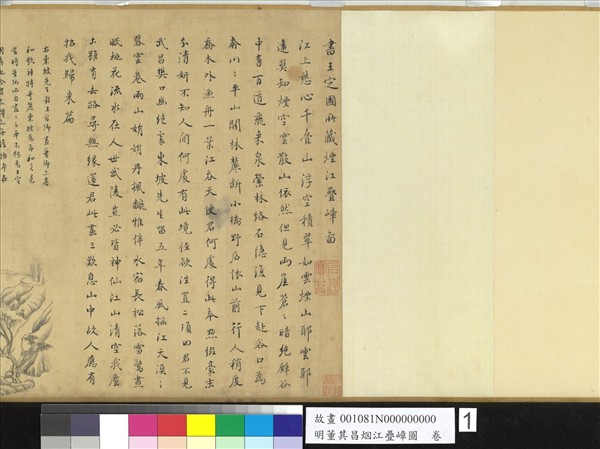 書王定國所藏煙江疊嶂啚
江上愁心千疊山浮空積翠如雲煙山耶雲耶
遠莫知煙空雲散山依然但見兩崖蒼〻暗絕谷
中有百道飛來泉縈林絡石隱復見下赴谷口為
奔川〻平山開林麓斷小橋野店依山前行人稍度
喬木外漁舟一葉江吞天使君何處得此本點綴豪末
分清妍不知人間何處有此境徑欲往置二頃田君不見
武昌樊口幽絕處東坡先生留五年春風搖江天漠〻
暮雲卷雨山娟娟丹楓翻鴉伴水宿長松落雪驚晝
眠桃花流水在人世武陵豈必皆神仙江山清空我塵
土雖有去路尋無緣還君此畫三歎息山中故人應有
招我歸來篇
右東坡先生題王晉卿畫晉卿亦有
和歌語特奇東坡為再和之意
當時晉卿必自畫二三本不獨為王定
故畫 001081N000000000
明董其昌烟江疊嶂圖 卷
1